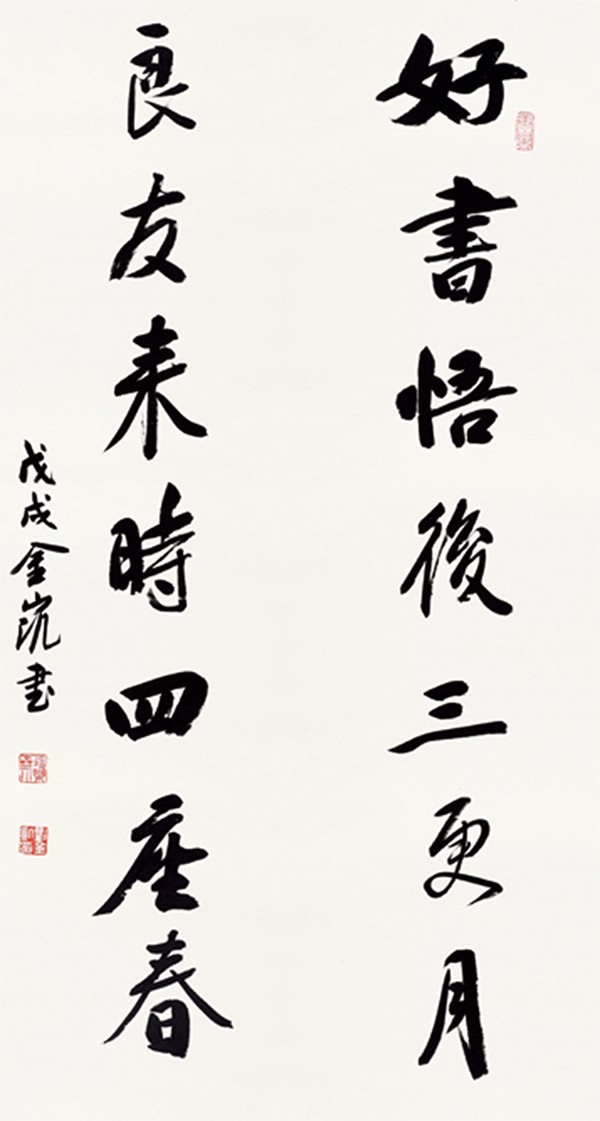 好書悟後三更月
良友来時四座春
戊戌金㟬书